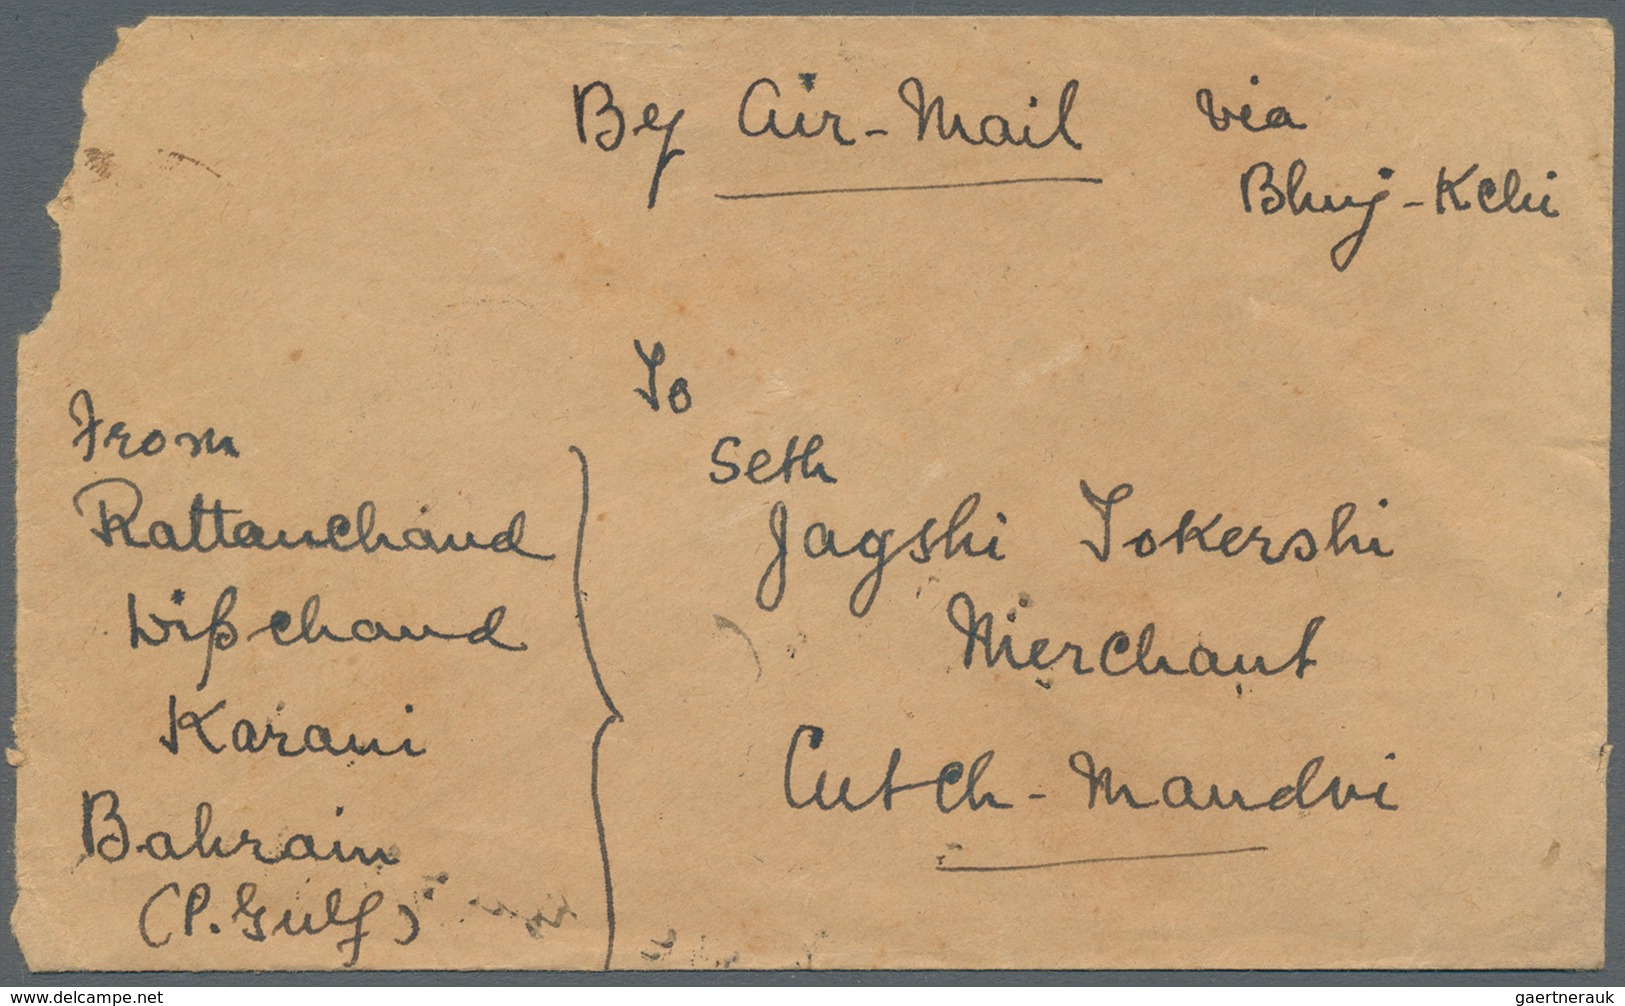 By Air-Mail via
Bhuj-Kchi
To
Seth
Jagshi Tokershi
Merchant
Cutch-Mandvi
From
Rattanchand
Dipchand
Karani
Bahrain
(P. Gulf)
www.delcampe.net
gaertnerauk